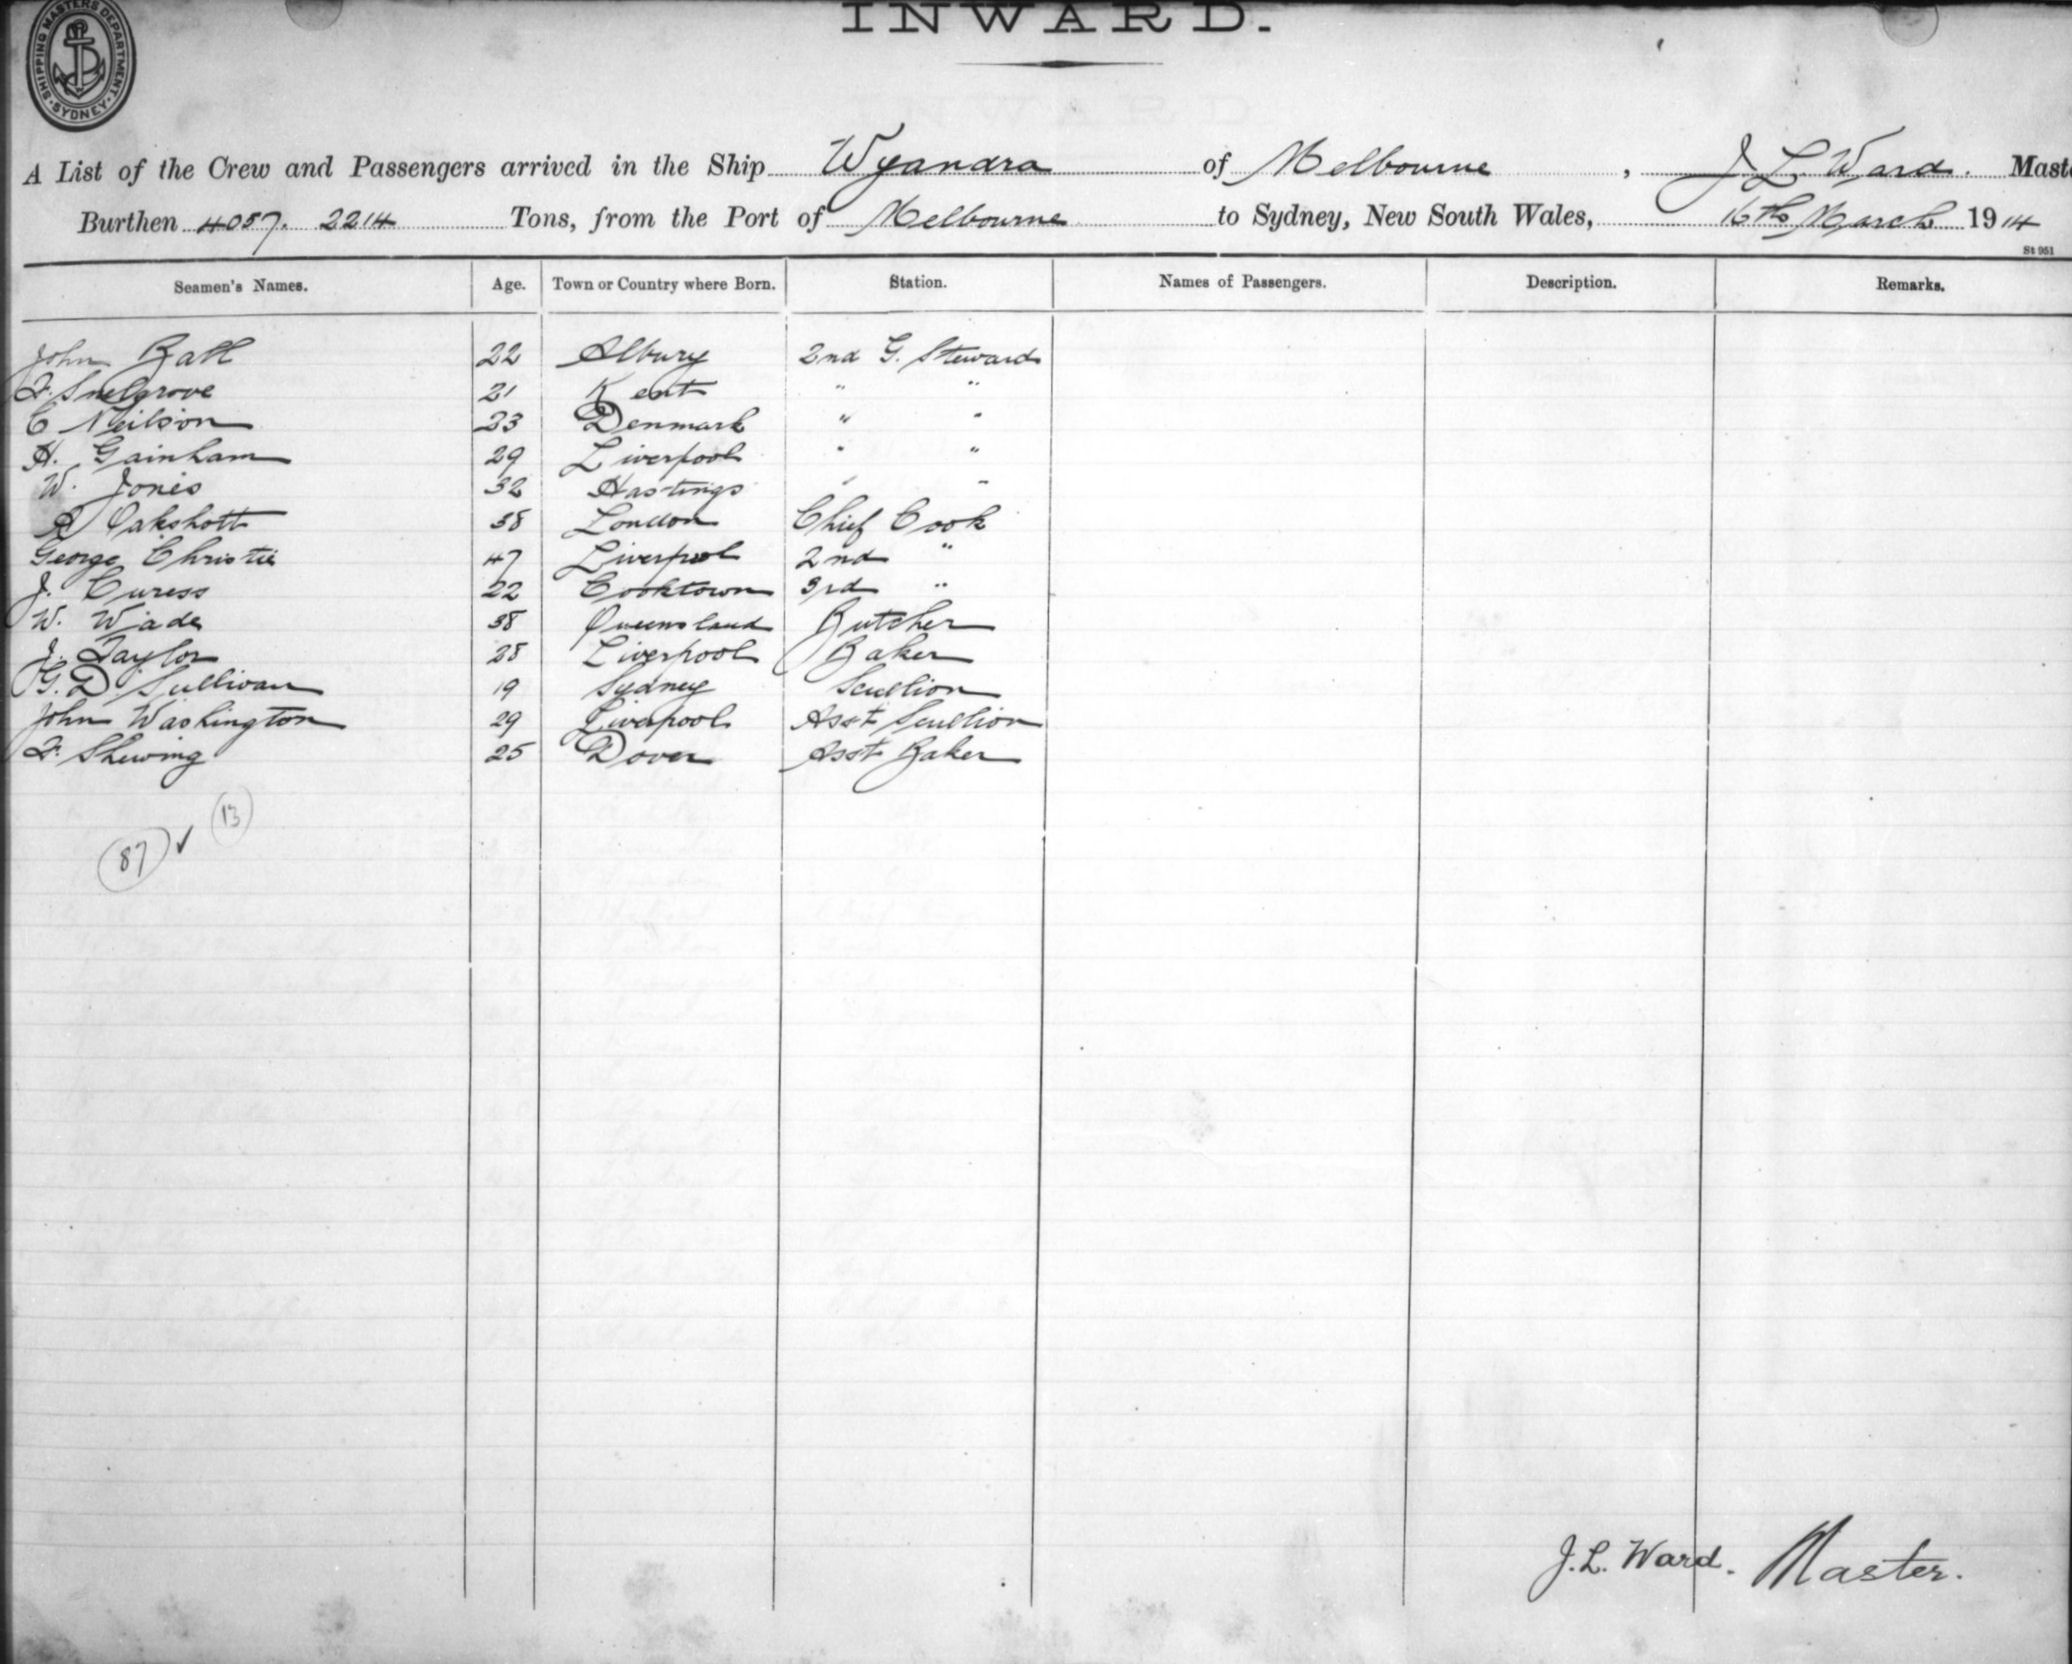 SHIPPING MASTERS DEPARTMENT · SYDNEY ·
INWARD.
A List of the Crew and Passengers arrived in the Ship Wyandra of Melbourne, J L. Ward. Maste
Burthen 4057. 2214 Tons, from the Port of Melbourne to Sydney, New South Wales, 16th March 1914
St 951
Seamen's Names. Age. Town or Country where Born. Station. Names of Passengers. Description. Remarks.
John Ball 22 Albury 2nd G. Steward
F. Snelgrove 21 Kent " "
C Neilson 23 Denmark " "
H. Gainham 29 Liverpool " "
W. Jones 32 Hastings " "
R Oakshott 38 London Chief Cook
George Christie 47 Liverpool 2nd "
J. Curess 22 Cooktown 3rd "
W. Wade 38 Queensland Butcher
J. Taylor 28 Liverpool Baker
G. D. Sullivan 19 Sydney Scullion
John Washington 29 Liverpool Asst Scullion
F. Shewing 25 Dover Asst Baker
13
87 ✓
J. L. Ward. Master.